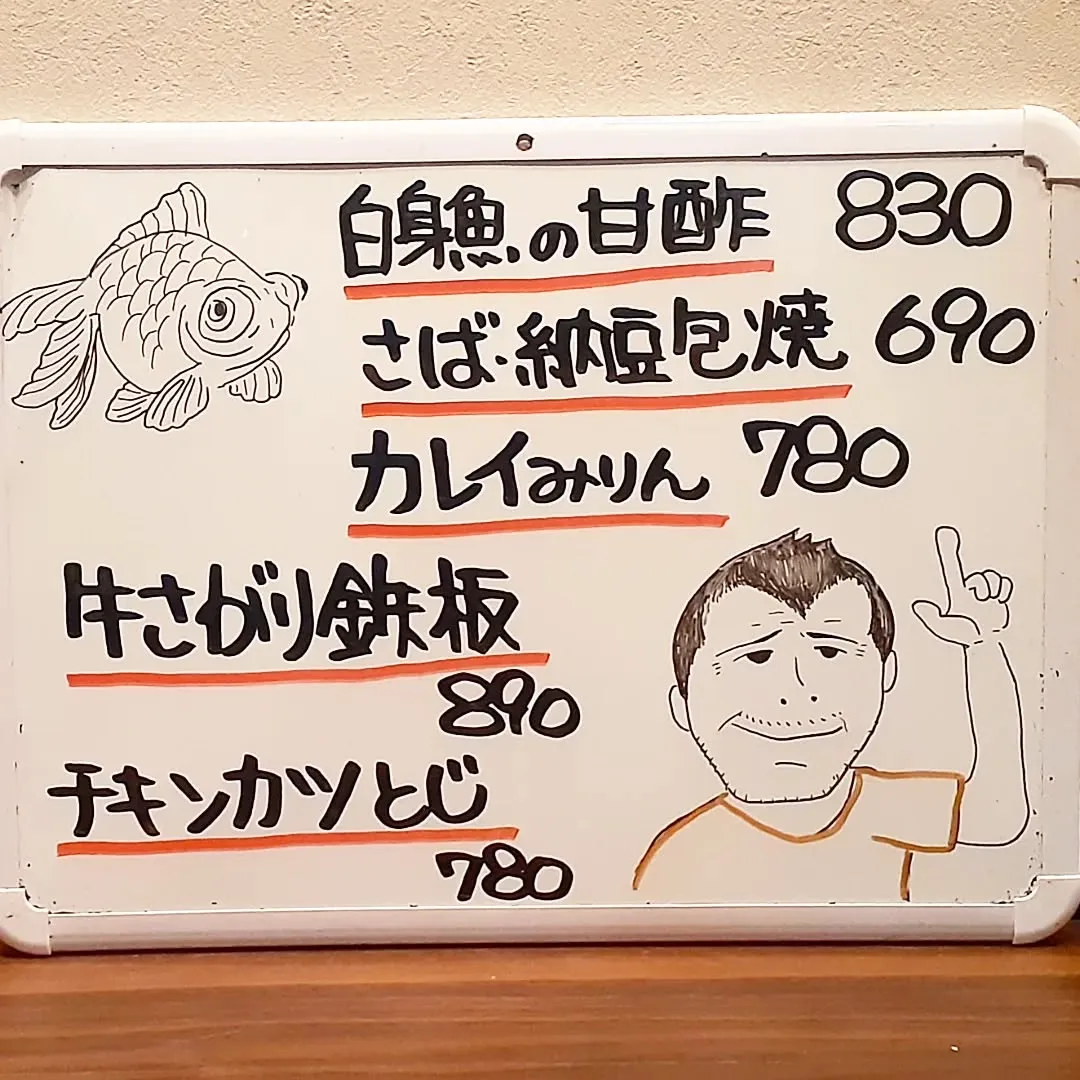 白身魚の甘酢 830
さば・納豆包焼 690
カレイみりん 780
牛さがり鉄板
890
チキンカツとじ
780